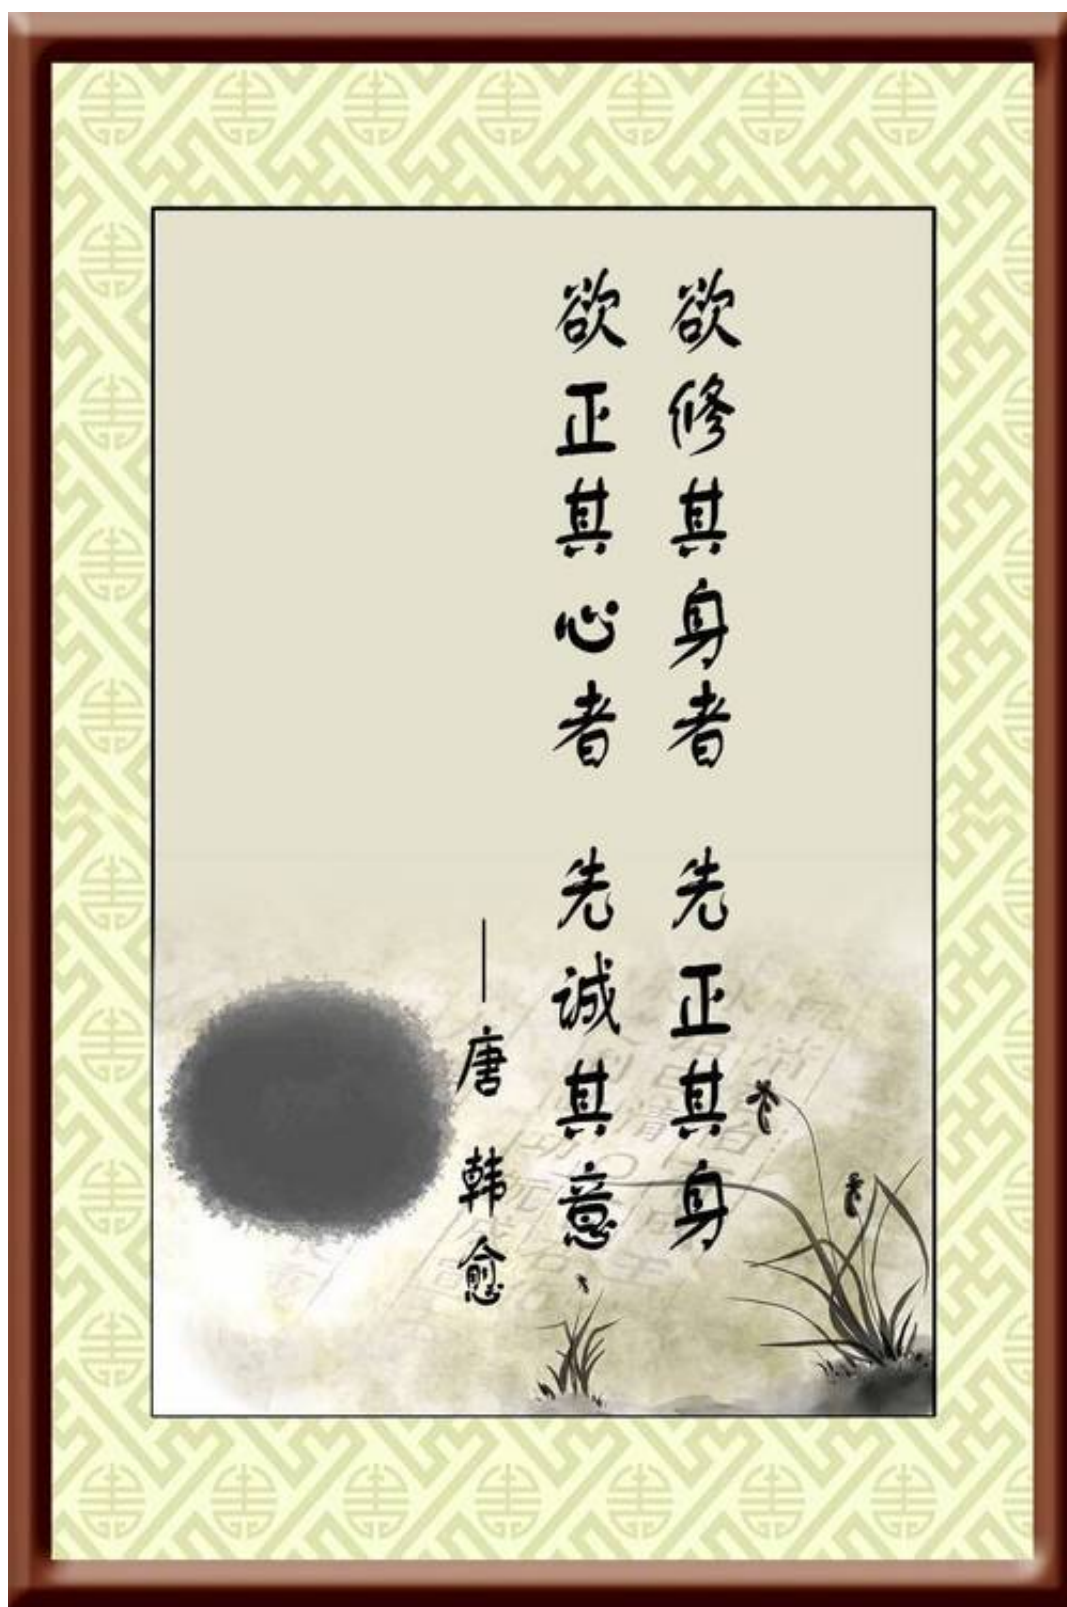 欲修其身者 先正其身
欲正其心者 先诚其意
——唐 韩愈